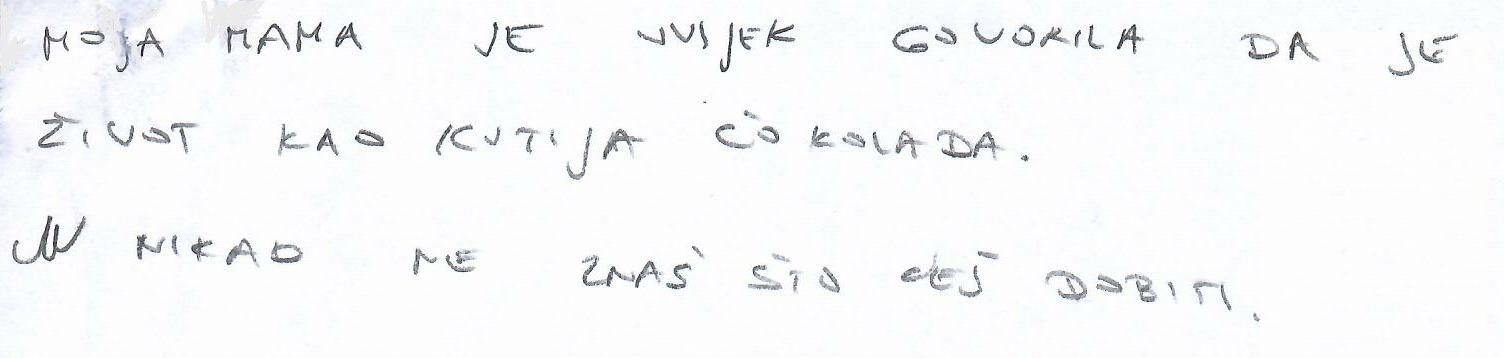 MOJA MAMA JE UVIJEK GOVORILA DA JE
ŽIVOT KAO KUTIJA ČOKOLADA.
NIKAD NE ZNAŠ ŠTO ĆEŠ DOBITI.